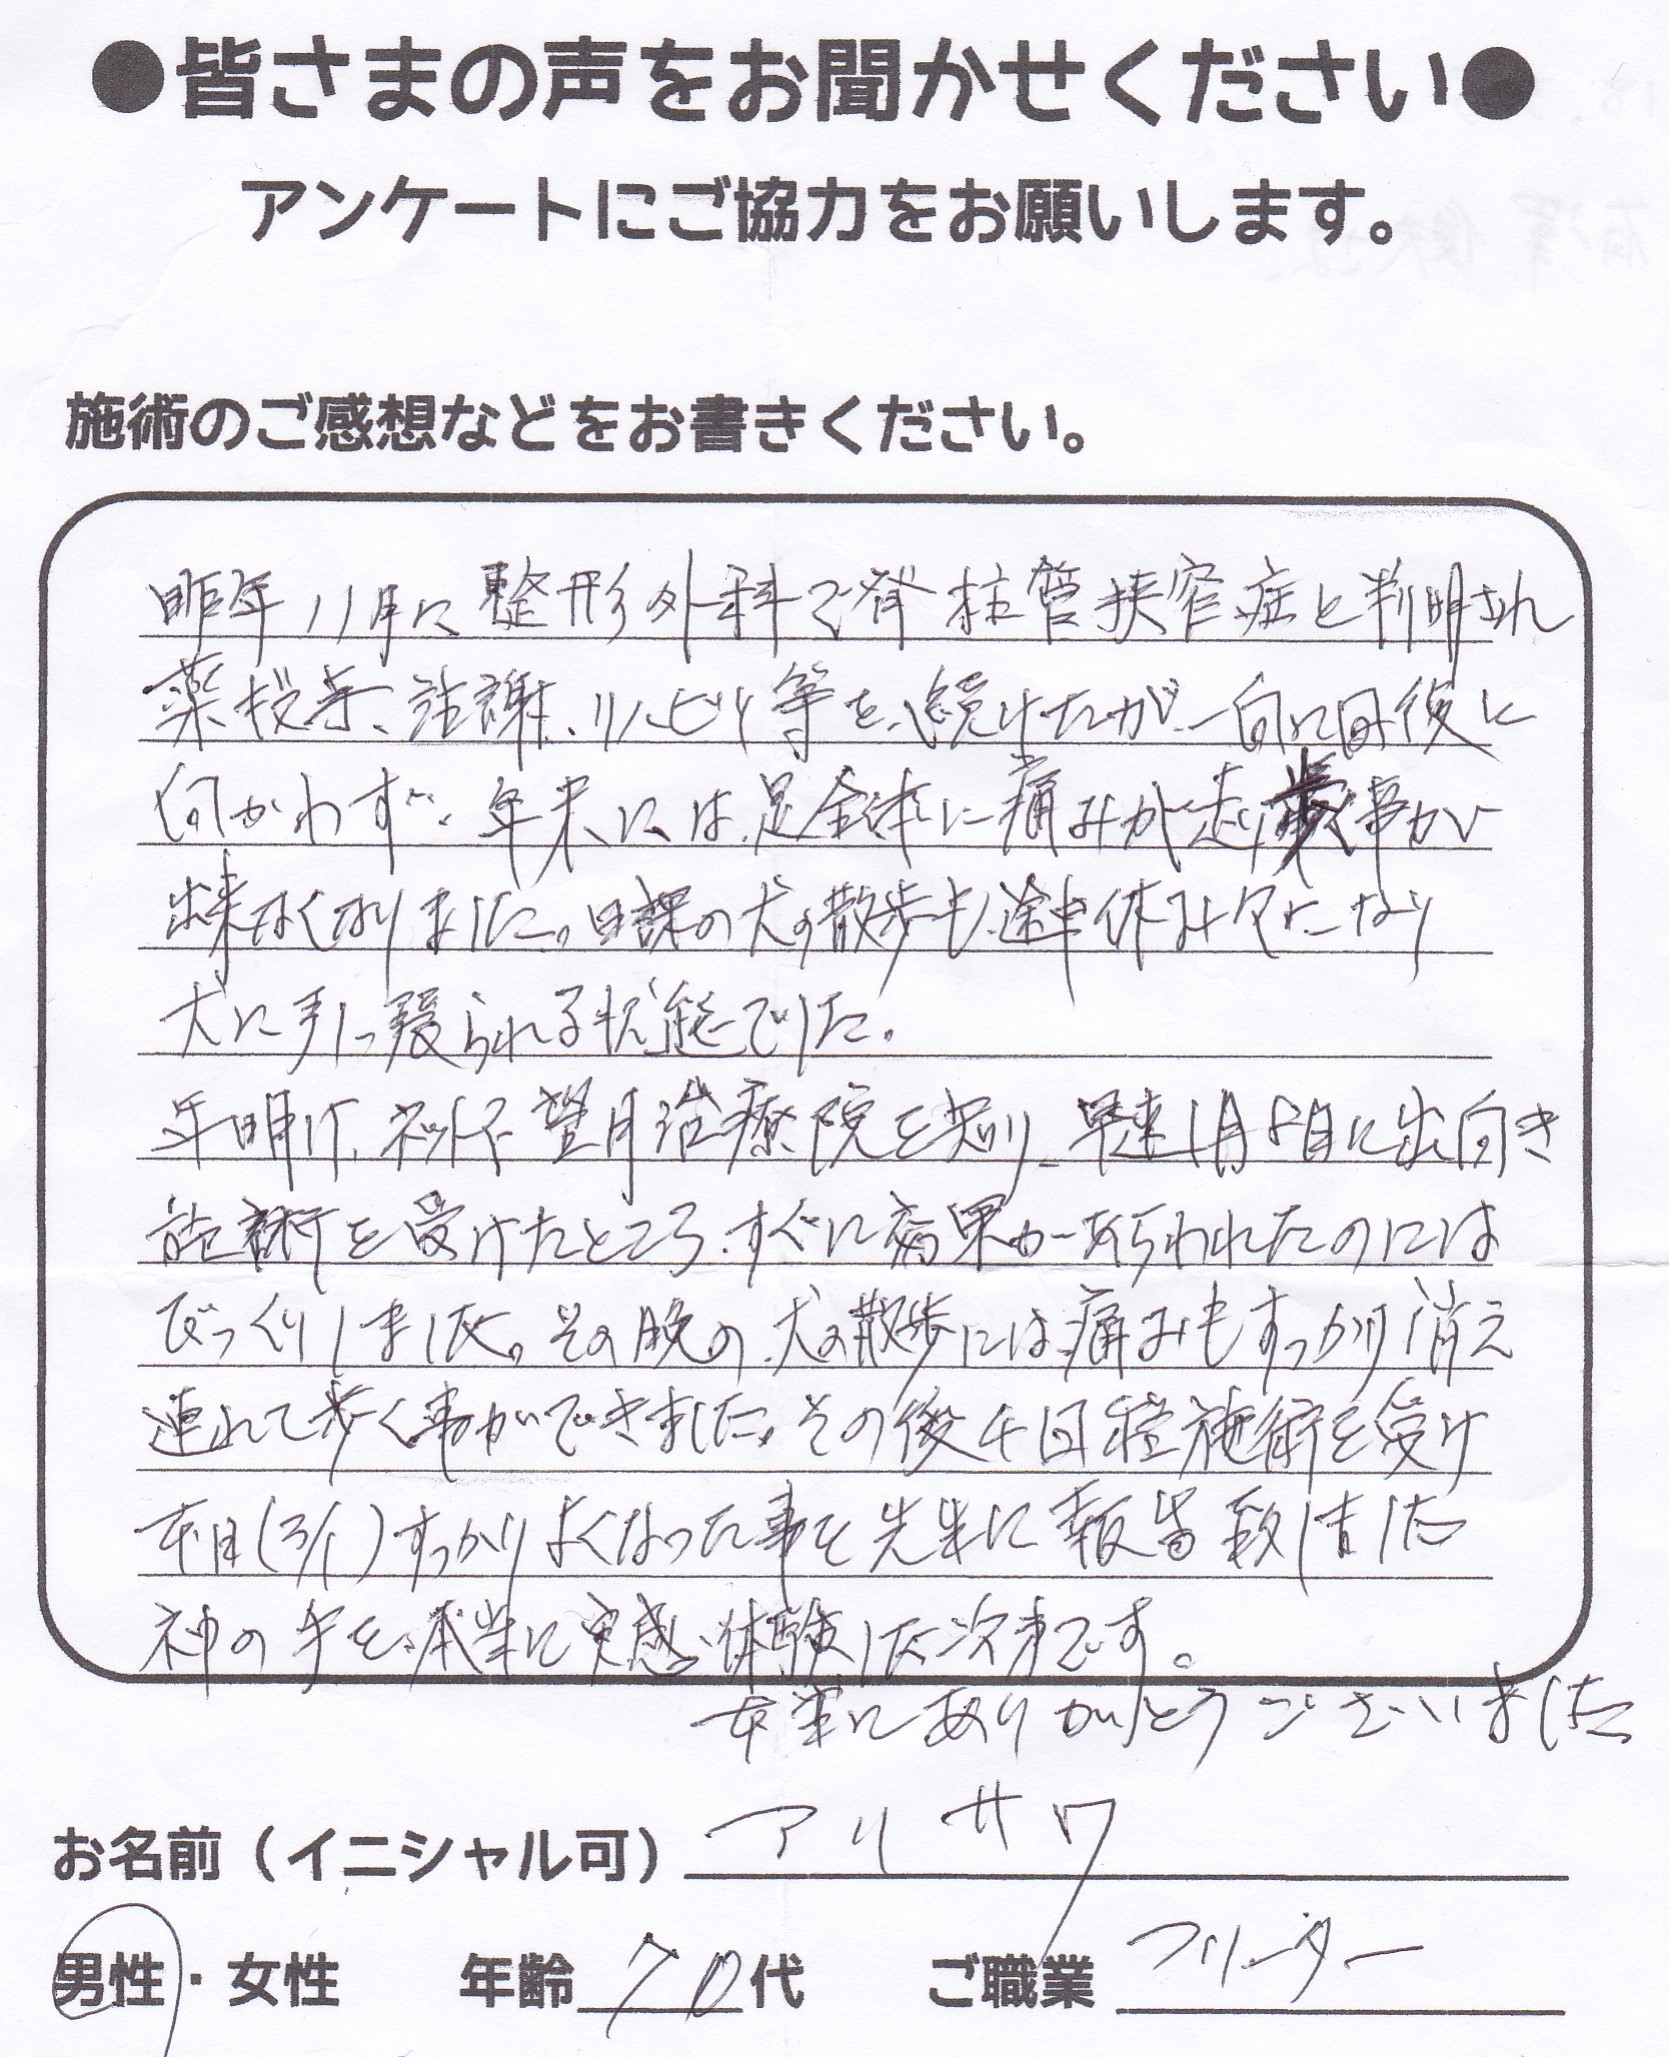 ●皆さまの声をお聞かせください●
アンケートにご協力をお願いします。
施術のご感想などをお書きください。
昨年11月に整形外科で脊柱管狭窄症と判明され
薬投与、注謝、リハビリ等を、続けたが、一向に回復に
向かわず、年末には、足全体に痛みが走り歩く事が
出来なくなりました。日課の犬の散歩も、途中休み々になり
犬に引っ張られる状態でした。
年明け、ネットで望月治療院を知り、早速1月8日に出向き
施術を受けたところ、すぐに効果があらわれたのには
びっくりしました。その晩の、犬の散歩には、痛みもすっかり消え
連れて歩く事ができました。その後4回程施術を受け
本日(3/1)すっかりよくなった事を先生に報告致しました
神の手を、本当に実感、体験した次第です。
本当にありがとうございました
お名前（イニシャル可） アリサワ
男性・女性 年齢 70代 ご職業 フリーター